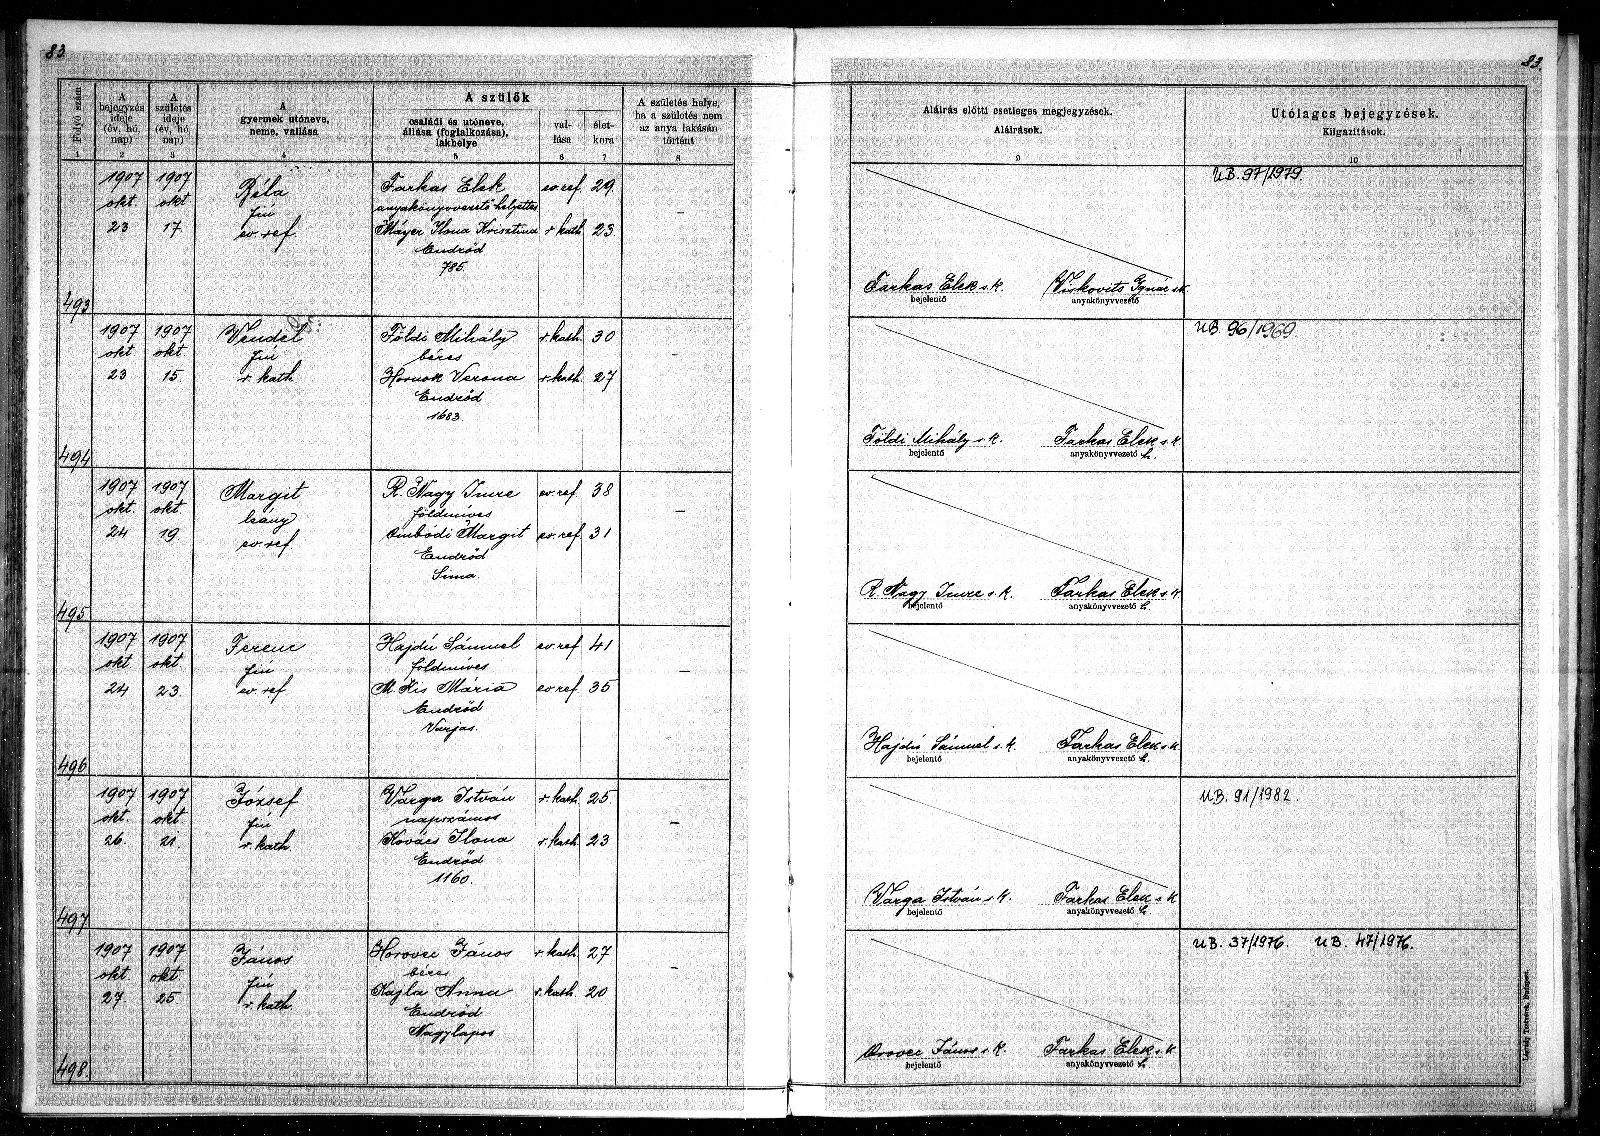 83
83.
Folyó szám
A bejegyzés ideje (év, hó, nap)
A születés ideje (év, hó, nap)
A gyermek utóneve, neme, vallása
A szülők
családi és utóneve, állása (foglalkozása), lakhelye
vallása
életkora
A születés helye, ha a születés nem az anya lakásán történt
Aláírás előtti esetleges megjegyzések.
Aláírások.
Utólagos bejegyzések.
Kiigazítások.
1 2 3 4 5 6 7 8 9 10
493
1907 okt 23
1907 okt 17
Béla
fiú
ev. ref
Farkas Elek ev. ref 29.
anyakönyvvezető helyettes
Máyer Ilona Krisztina r. kath 23.
Endrőd
785.
–
Farkas Elek s. k.
bejelentő
Virkovits Ignác s. k.
anyakönyvvezető
UB. 97/1979.
494
1907 okt 23
1907 okt 15.
Vendel
fiú
r. kath
Földi Mihály r. kath. 30
béres
Hornok Verona r. kath. 27
Endrőd
1683.
–
Földi Mihály s. k.
bejelentő
Farkas Elek s. k.
anyakönyvvezető h.
UB. 96/1969.
495
1907 okt. 24
1907 okt. 19.
Margit
leány
ev. ref.
R. Nagy Imre ev. ref. 38
földmíves
Ombódi Margit ev. ref. 31
Endrőd
Sima.
–
R. Nagy Imre s. k.
bejelentő
Farkas Elek s. k.
anyakönyvvezető h.
496
1907 okt. 24
1907 okt. 23.
Ferenc
fiú
ev. ref
Hajdú Sámuel ev. ref 41
földmíves
M. Kis Mária ev. ref 35
Endrőd
Varjas.
–
Hajdú Sámuel s. k.
bejelentő
Farkas Elek s. k.
anyakönyvvezető h.
497
1907 okt. 26.
1907 okt. 21.
József
fiú
r. kath.
Varga István r. kath. 25.
napszámos
Kovács Ilona r. kath. 23
Endrőd
1160.
–
Varga István s. k.
bejelentő
Farkas Elek s. k.
anyakönyvvezető h.
UB. 91/1982.
498.
1907 okt 27
1907 okt. 25
János
fiú
r. kath.
Horovec János r. kath. 27
béres
Kajla Anna r. kath. 20
Endrőd
Nagylapos
–
Orovec János s. k.
bejelentő
Farkas Elek s. k.
anyakönyvvezető h.
UB. 37/1976. UB. 47/1976.